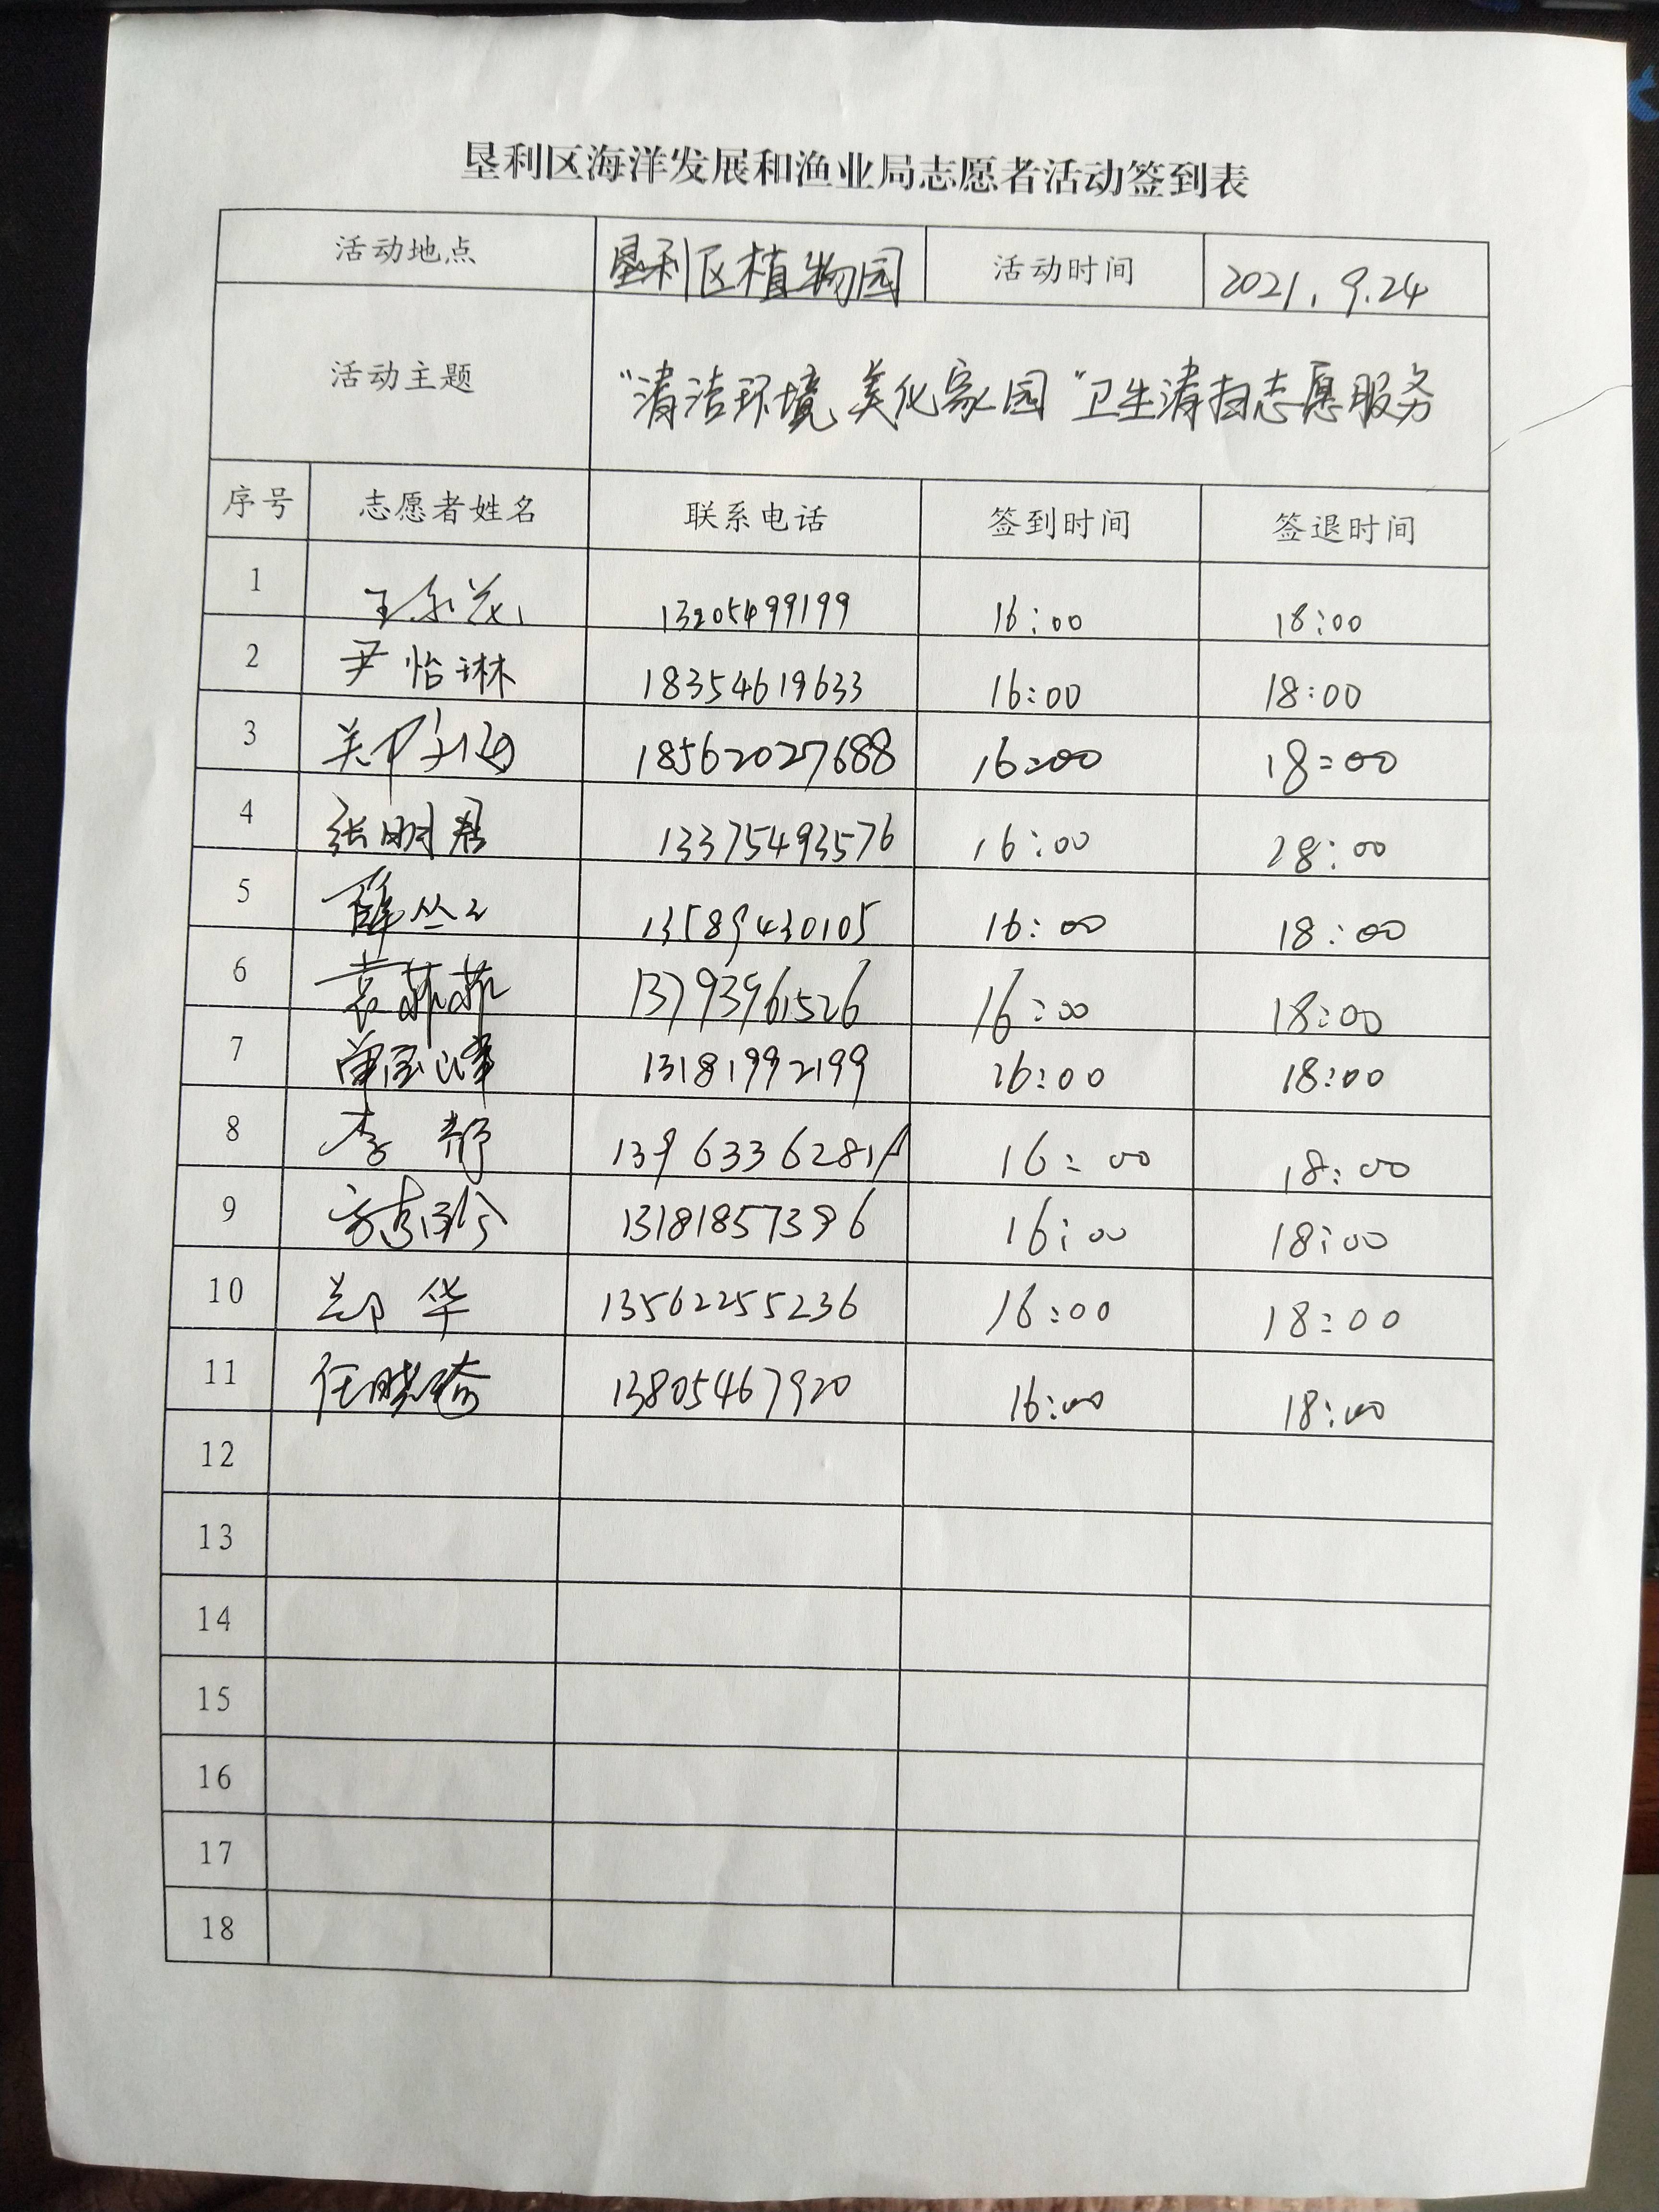 垦利区海洋发展和渔业局志愿者活动签到表
活动地点 垦利区植物园 活动时间 2021.9.24
活动主题 "清洁环境 美化家园"卫生清扫志愿服务
序号 志愿者姓名 联系电话 签到时间 签退时间
1 13205499199 16:00 18:00
2 尹怡琳 18354619633 16:00 18:00
3 18562027688 16:00 18:00
4 张明君 13375493576 16:00 18:00
5 薛丛 13589430105 16:00 18:00
6 袁菲菲 13793961526 16:00 18:00
7 13181992199 16:00 18:00
8 李静 16:00 18:00
9 13181857396 16:00 18:00
10 郑华 13562255236 16:00 18:00
11 任晓 13805467920 16:00 18:00
12
13
14
15
16
17
18